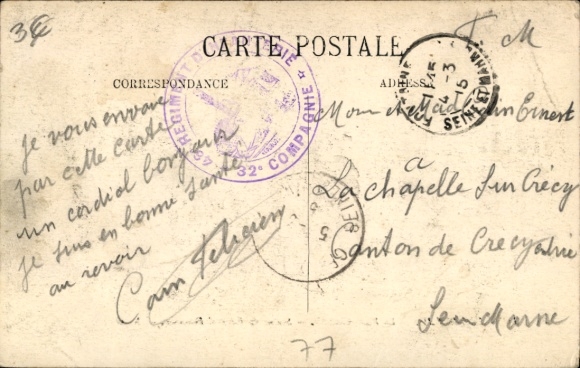 3€
F M
CARTE POSTALE
CORRESPONDANCE
ADRESSE
46e REGIMENT D'INFANTERIE
32e COMPAGNIE
SEINE
Je vous envoie
par cette carte
un cordial bonjour
je suis en bonne santé
au revoir
Felicien
Mons et Mad Ernest
a
La chapelle Sur Crécy
canton de Crecy
Sein Marne
77